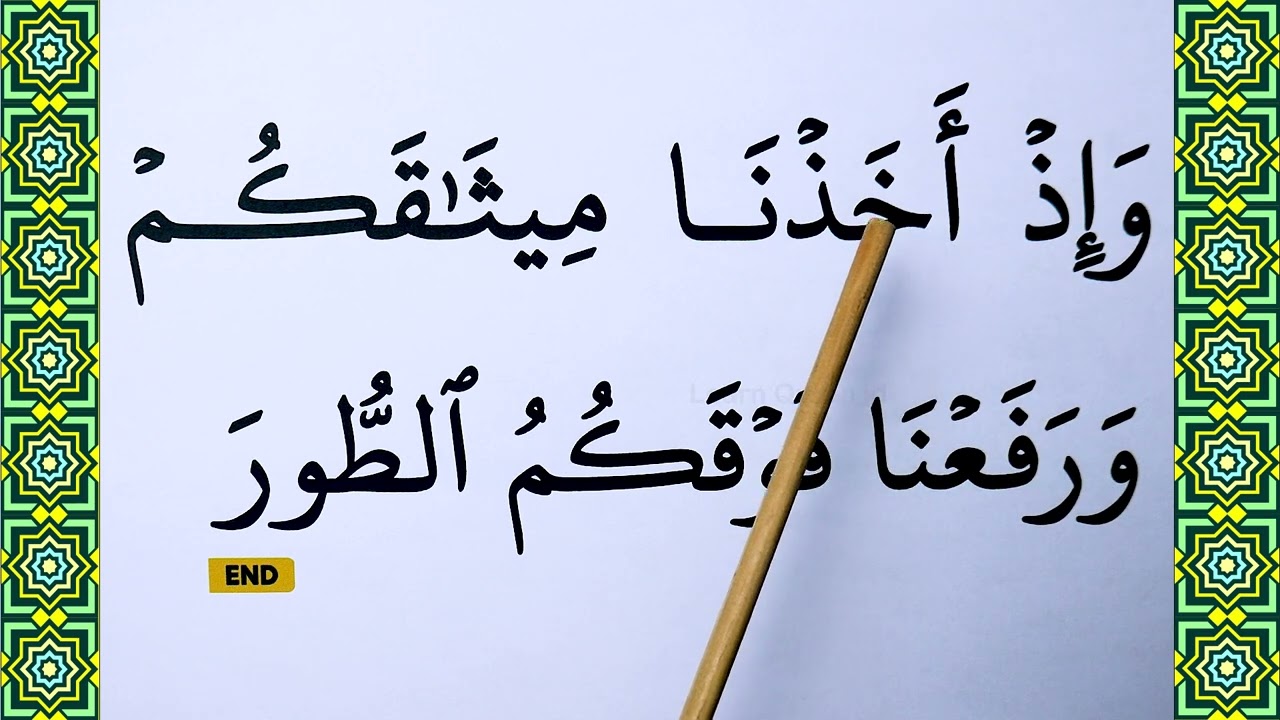 وَإِذْ أَخَذْنَا مِيثَٰقَكُمْ
وَرَفَعْنَا فَوْقَكُمُ ٱلطُّورَ
END